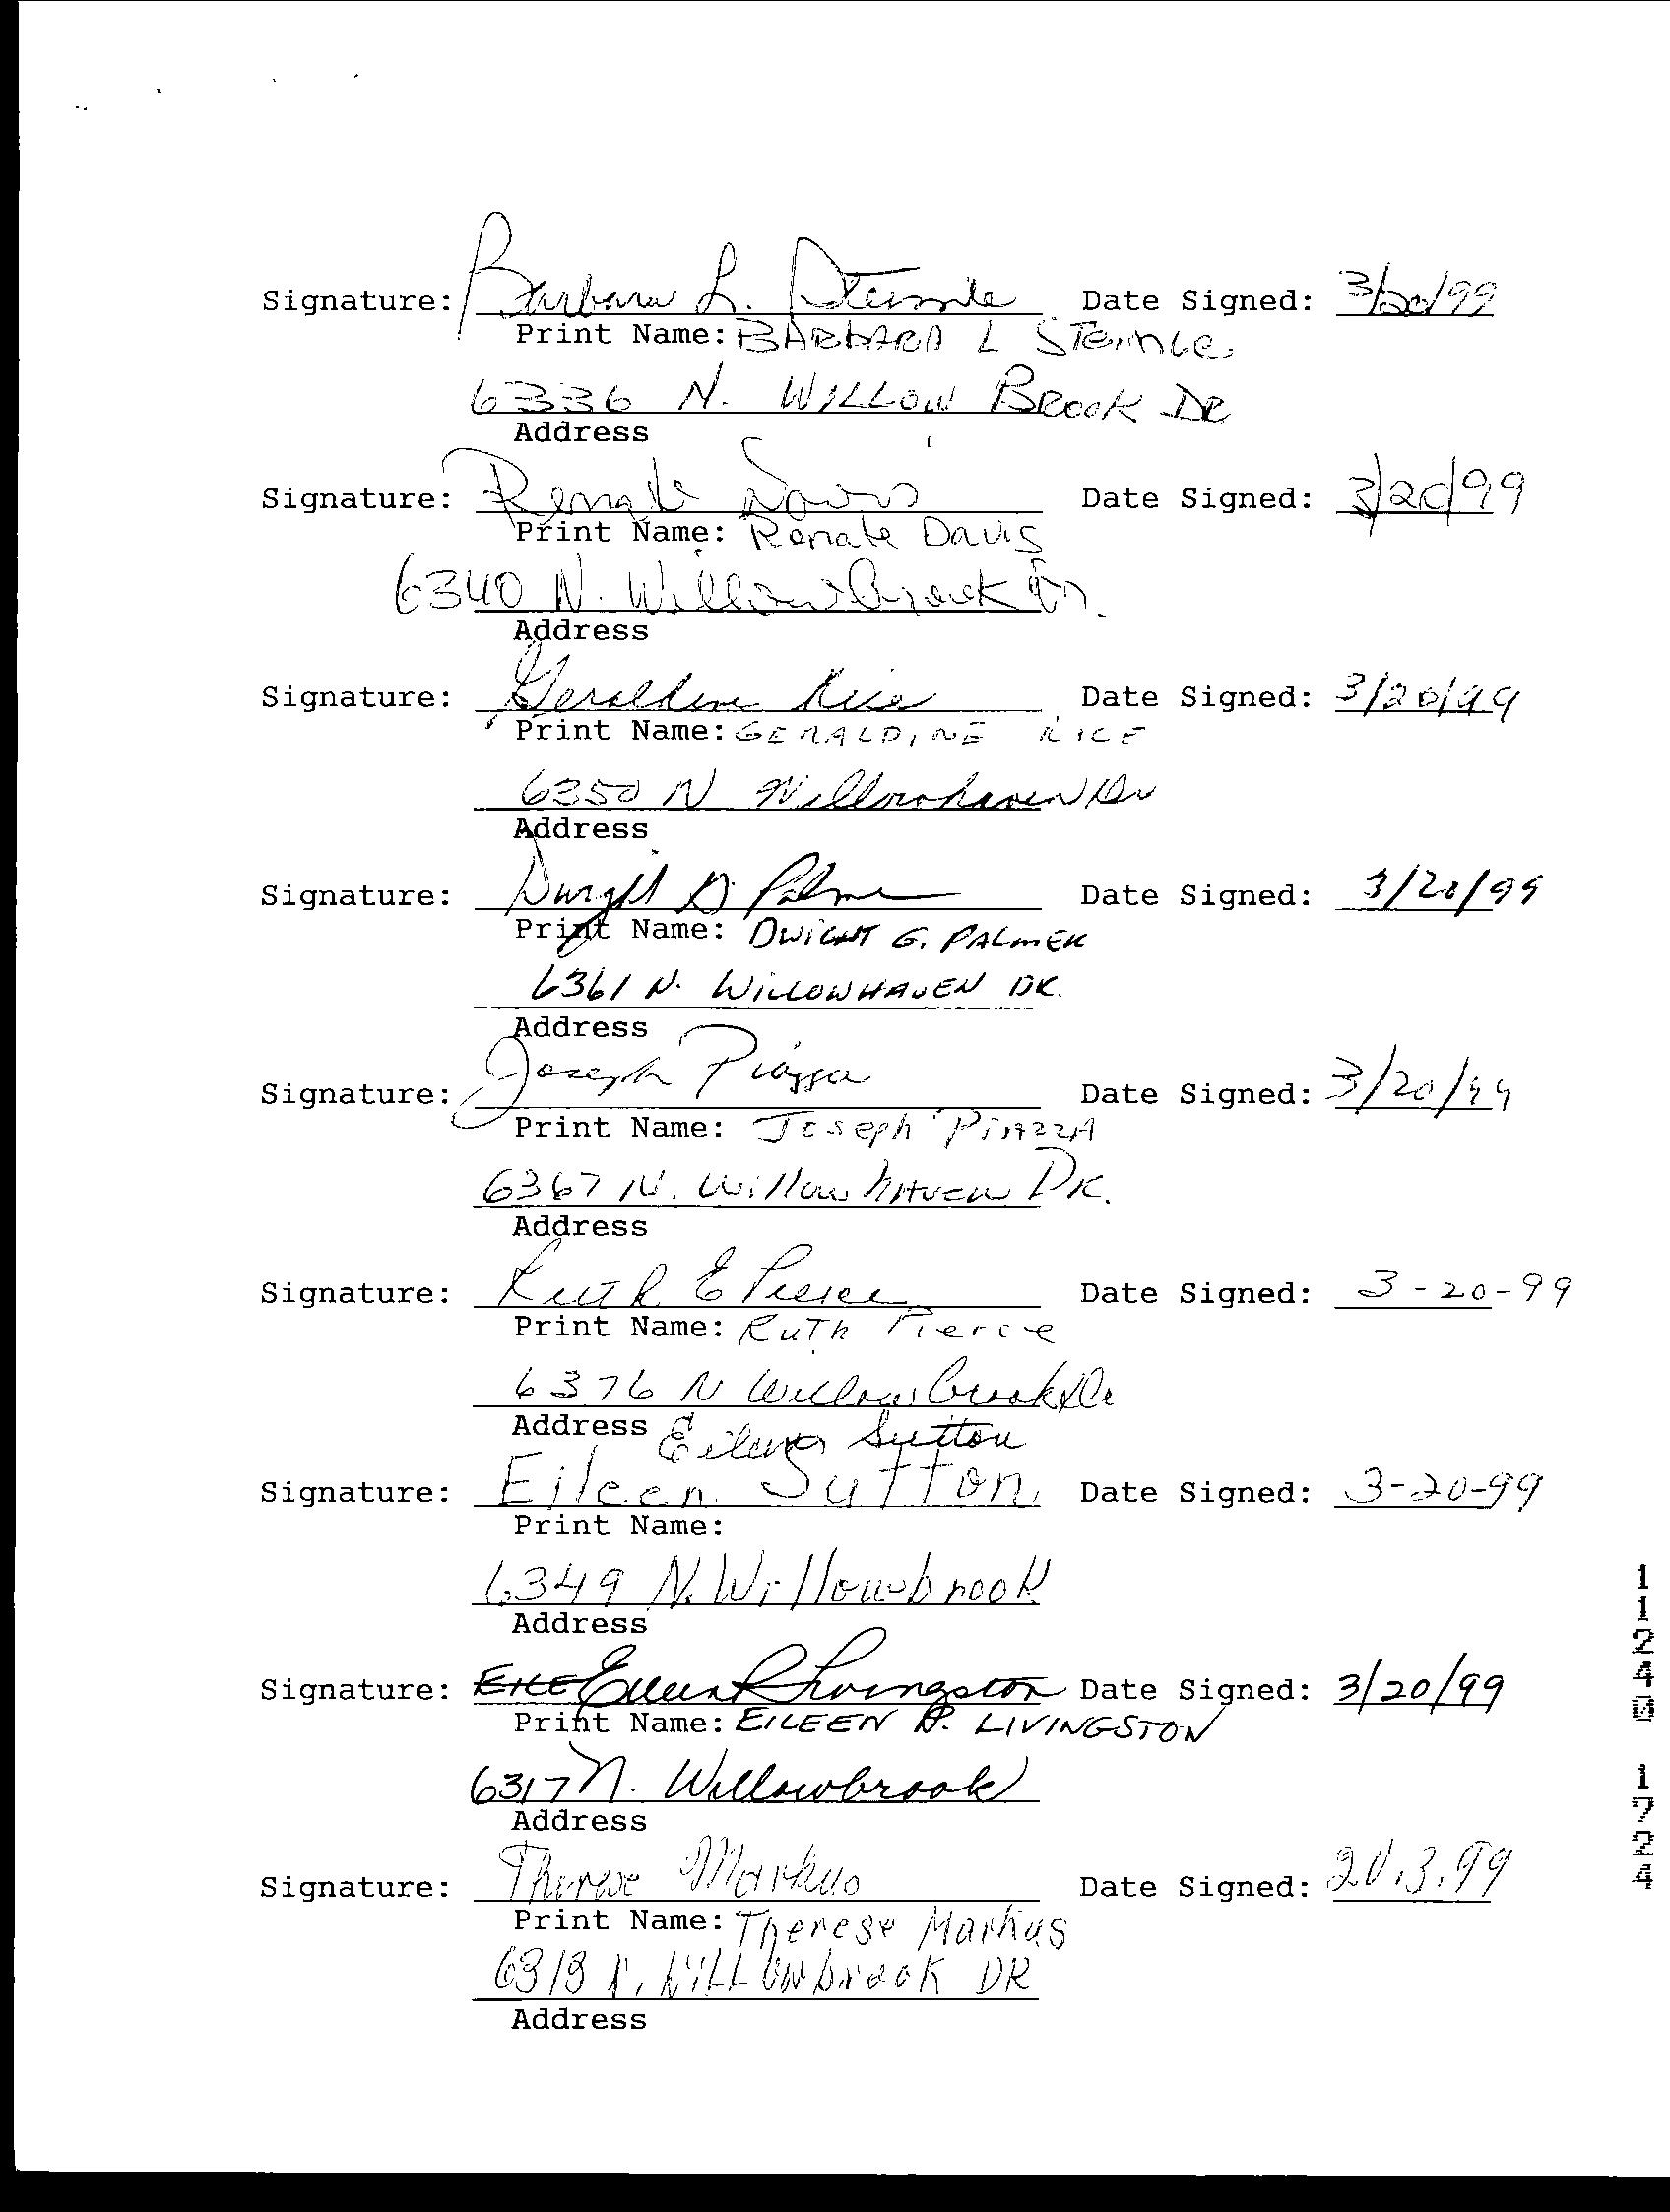 Signature: Barbara L. Steinle Date Signed: 3/20/99
Print Name: BARBARA L STEINLE
6336 N. WILLOW BROOK DR
Address
Signature: Renate Davis Date Signed: 3/20/99
Print Name: Renate Davis
6340 N. Willowbrook Dr.
Address
Signature: Geraldine Rice Date Signed: 3/20/99
Print Name: GERALDINE RICE
6350 N Willowhaven Dr
Address
Signature: Dwight G Palmer Date Signed: 3/20/99
Print Name: DWIGHT G. PALMER
6361 N. WILLOWHAVEN DR.
Address
Signature: Joseph Piazza Date Signed: 3/20/99
Print Name: Joseph PiAZZA
6367 N. Willow hAven DR.
Address
Signature: Ruth E Pierce Date Signed: 3-20-99
Print Name: RuTh Pierce
6376 N Willowbrook Dr
Address Eileen Sutton
Signature: Eileen Sutton Date Signed: 3-20-99
Print Name:
6349 N. Willowbrook
Address
Signature: EILE Eileen R Livingston Date Signed: 3/20/99
Print Name: EILEEN R. LIVINGSTON
6317 N. Willowbrook
Address
Signature: Therese Markus Date Signed: 20.3.99
Print Name: Therese Markus
6318 N. WiLLOWbrook DR
Address
11240 1724